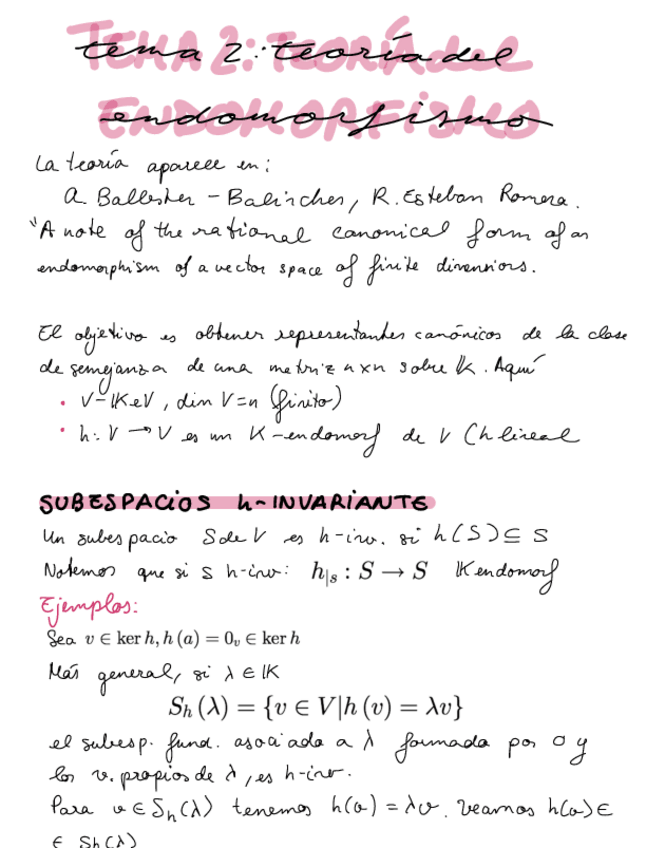 tema 2: teoría del
endomorfismo
La teoría aparece en:
A. Ballester - Bolinches, R. Esteban Romera.
"A note of the rational canonical form of an
endomorphism of a vector space of finite dimensions.
El objetivo es obtener representantes canónicos de la clase
de semejanza de una matriz nxn sobre K. Aquí
• V-IKeV, dim V=n (finito)
• h: V → V es un K-endomorf de V (h lineal
SUBESPACIOS h-INVARIANTE
Un subespacio S de V es h-inv. si h(S) ⊆ S
Notemos que si S h-inv: h|ₛ : S → S IK endomorf
Ejemplos:
Sea v ∈ ker h, h (a) = 0ᵥ ∈ ker h
Más general, si λ ∈ IK
Sₕ (λ) = {v ∈ V|h (v) = λv}
el subesp. fund. asociado a λ formado por 0 y
los v. propios de λ, es h-inv.
Para v ∈ Sₕ(λ) tenemos h(v) = λv. Veamos h(v) ∈
∈ Sh(λ)